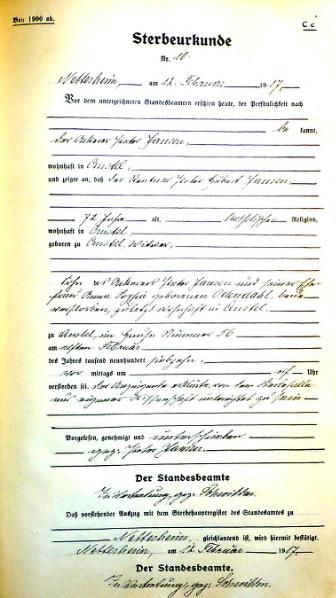 Von 1900 ab.
C c
Sterbeurkunde
Nr. 10.
Nettersheim, am 12. Februar 1917.
Vor dem unterzeichneten Standesbeamten erschien heute, der Persönlichkeit nach
be kannt,
der Ackerer Peter Hansen,
wohnhaft in
und zeigte an, daß der Rentner Peter Hubert Hansen,
72 Jahre alt, katholischer Religion,
wohnhaft in
geboren zu Witwer,
Sohn des Ackerers Peter Hansen und seiner Ehe-
frau Anna Sophia geborenen beide
verstorben, zuletzt wohnhaft in
zu im Hause Nummer 56
am elften Februar
des Jahres tausend neunhundert siebzehn,
vor mittags um elf Uhr
verstorben sei. Der Anzeigende erklärte, von dem Sterbefalle
aus eigener Wissenschaft unterrichtet zu sein.
Vorgelesen, genehmigt und unterschrieben
gez. Peter Hansen.
Der Standesbeamte
In Vertretung, gez.
Daß vorstehender Auszug mit dem Sterbehauptregister des Standesamtes zu
Nettersheim, gleichlautend ist, wird hiermit bestätigt.
Nettersheim, am 12. Februar 1917.
Der Standesbeamte.
In Vertretung, gez.